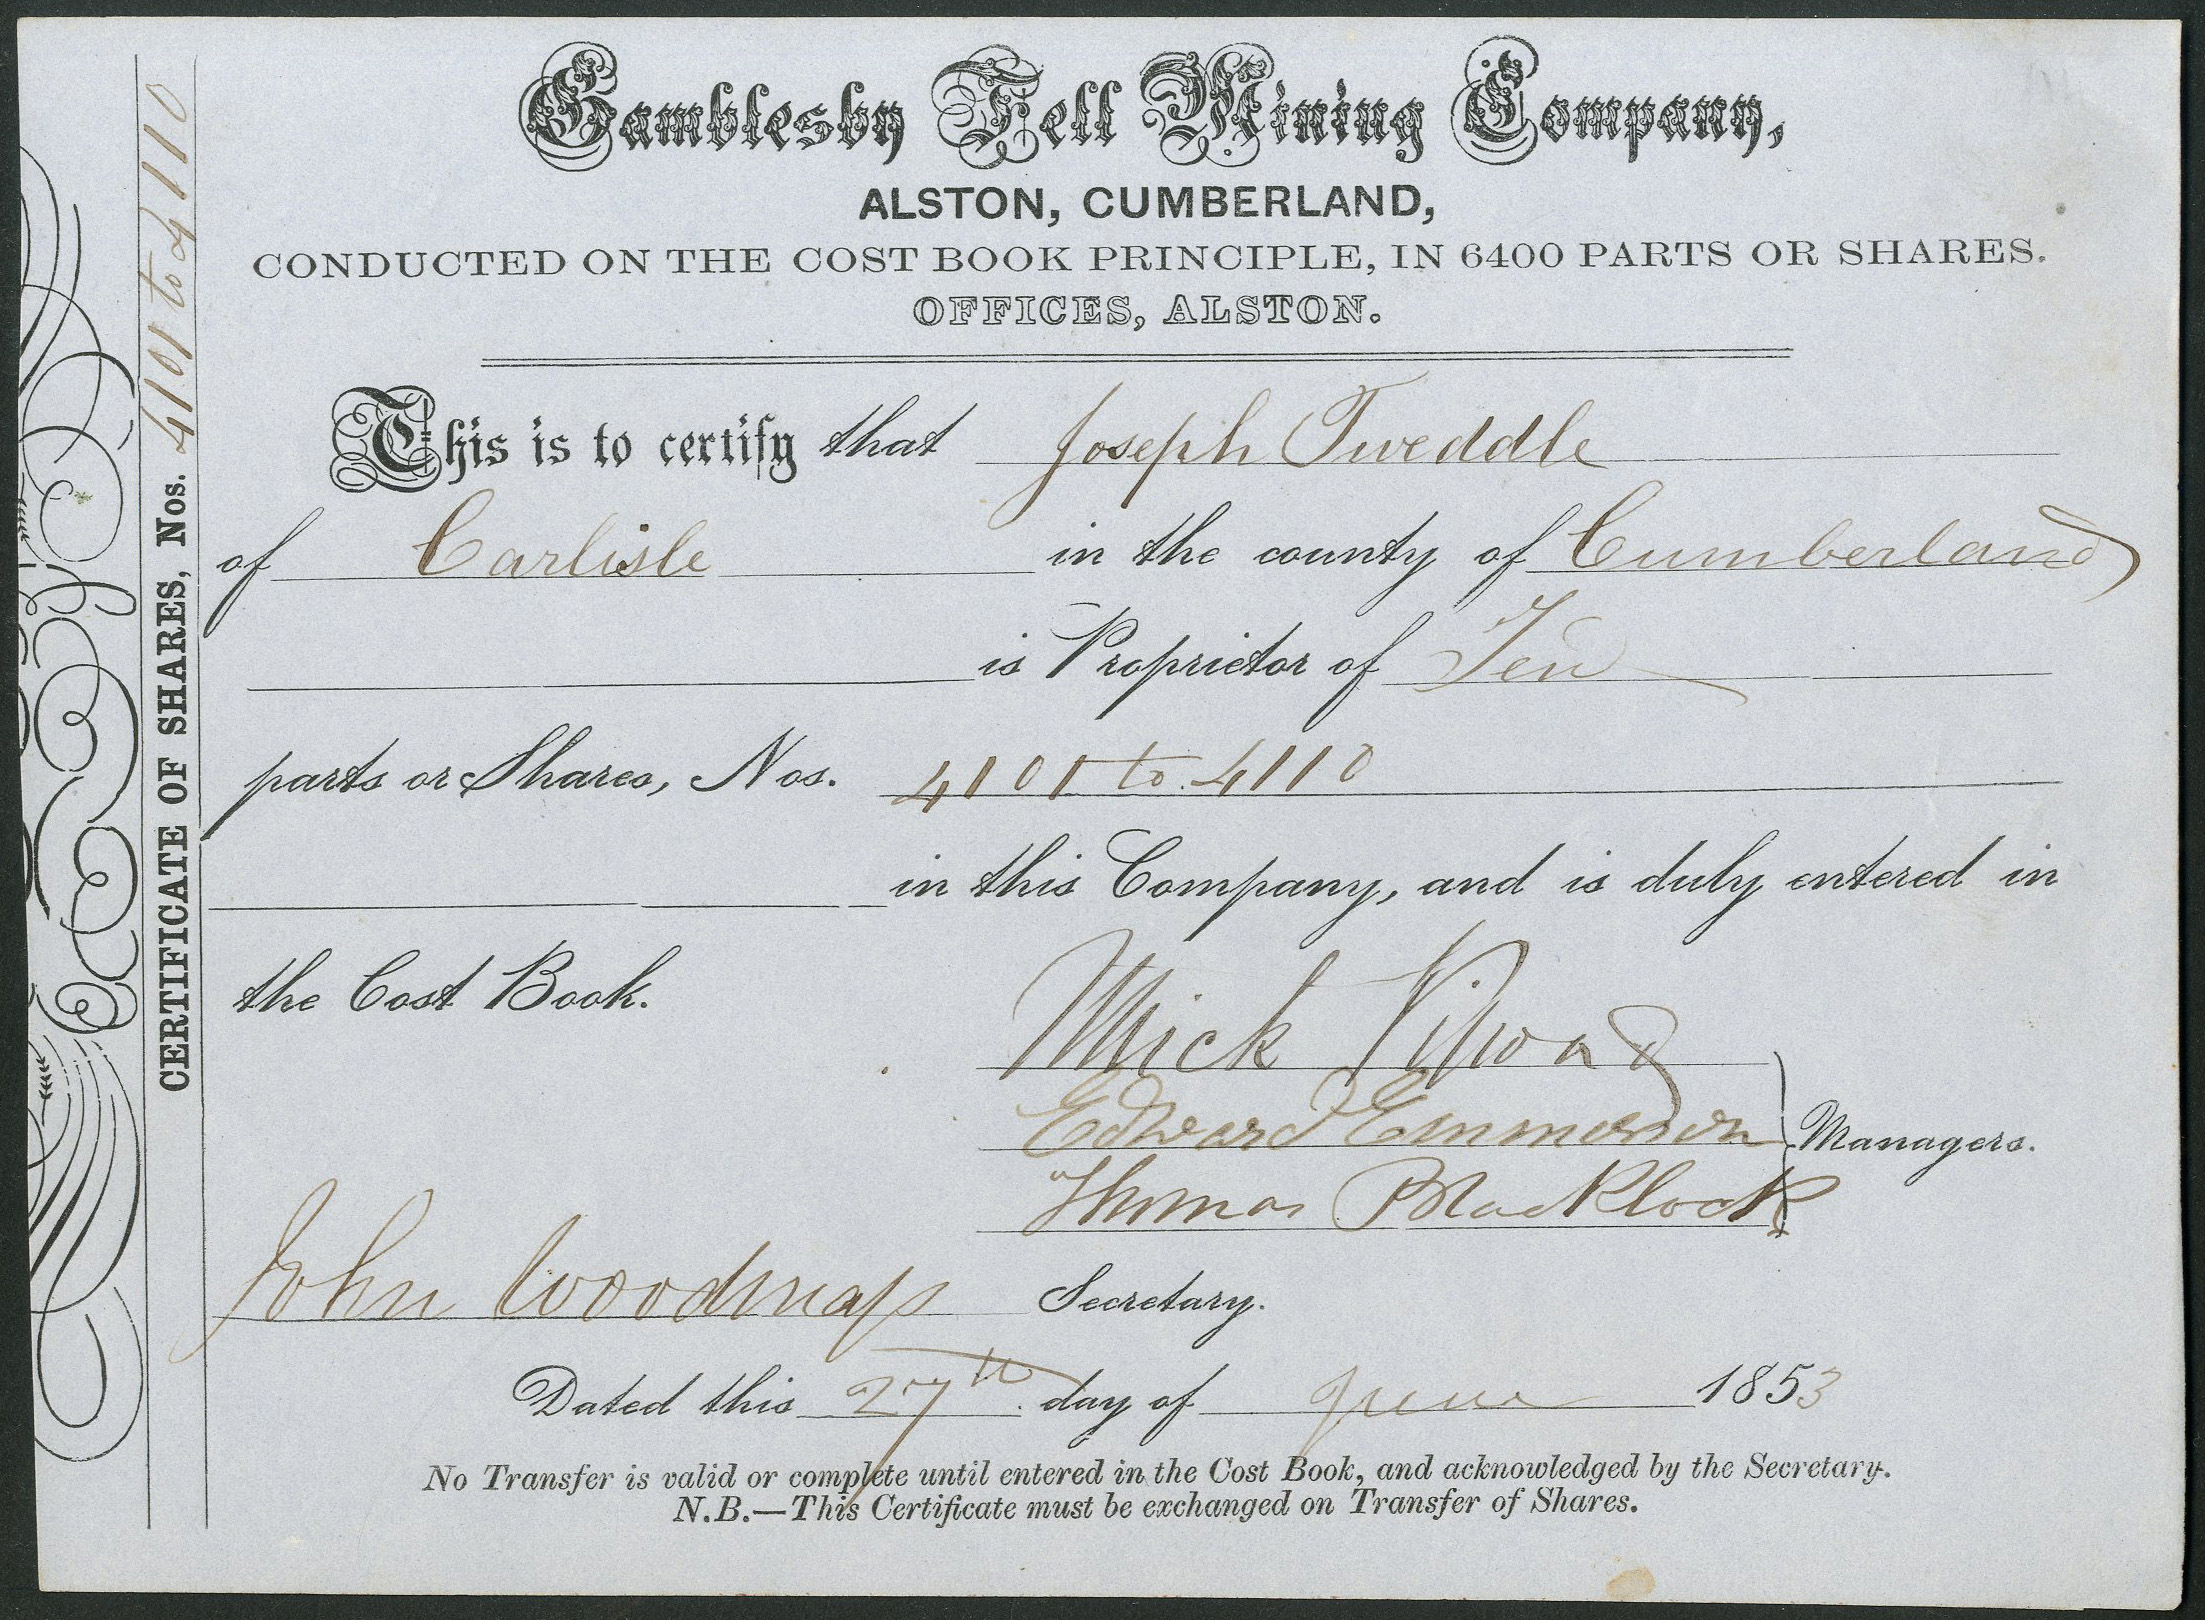 Gamblesby Fell Mining Company,
ALSTON, CUMBERLAND,
CONDUCTED ON THE COST BOOK PRINCIPLE, IN 6400 PARTS OR SHARES.
OFFICES, ALSTON.
CERTIFICATE OF SHARES, Nos. 4101 to 4110
This is to certify that Joseph Tweddle
of Carlisle in the county of Cumberland
is Proprietor of Ten
parts or Shares, Nos. 4101 to 4110
in this Company, and is duly entered in
the Cost Book.
Mick
Edward Emmerson
Managers.
Thomas Blacklock
John Woodmass Secretary.
Dated this 27th day of June 1853
No Transfer is valid or complete until entered in the Cost Book, and acknowledged by the Secretary.
N.B.—This Certificate must be exchanged on Transfer of Shares.